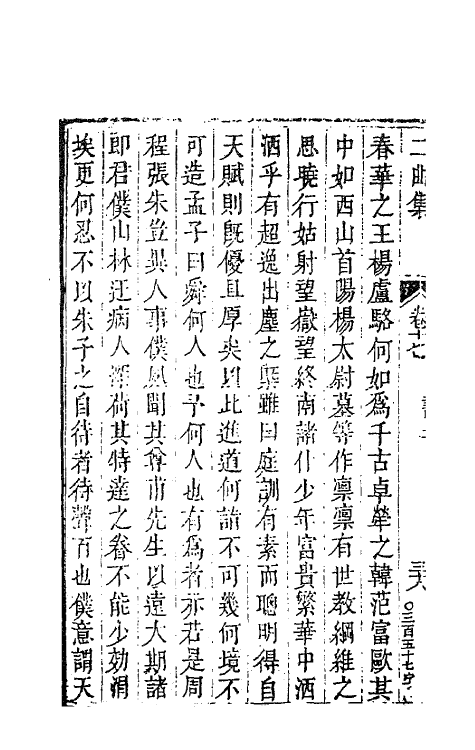 二曲集　卷十七　書二　三六　○三百五七字
春華之王楊盧駱何如爲千古卓犖之韓范富歐其
中如西山首陽楊太尉墓等作凛凛有世教綱維之
思曉行姑射望嶽望終南諸什少年富貴繁華中洒
洒乎有超逸出塵之槩雖曰庭訓有素而聰明得自
天賦則旣優且厚矣以此進道何詣不可幾何境不
可造孟子曰舜何人也予何人也有爲者亦若是周
程張朱豈異人事僕夙聞其尊甫先生以遠大期諸
郎君僕山林迂病人謬荷其特達之眷不能少効涓
埃更何忍不以朱子之自待者待聲百也僕意謂天